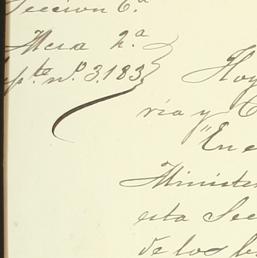 Seccion 6.ª
Mesa 2.ª
pte. nº. 3.183
Hoy
ria y C
"En e
Ministe
esta Sec
de los